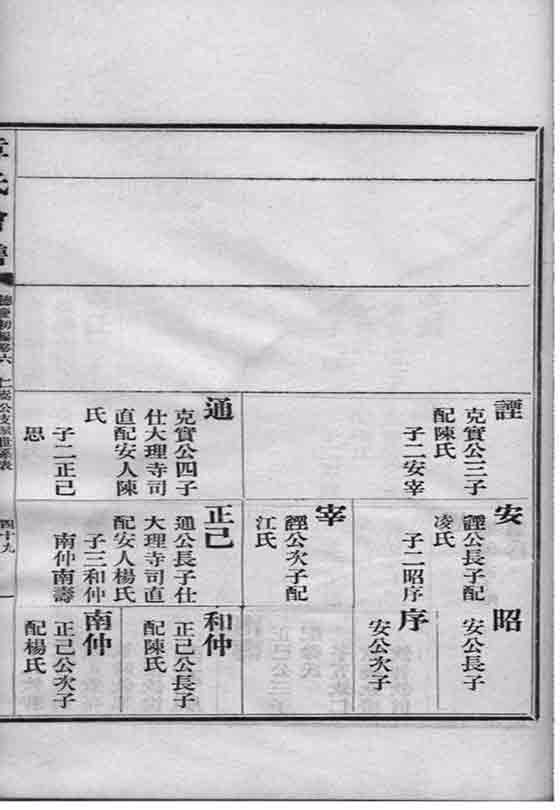 諲
克實公三子
配陳氏
子二安宰
通
克實公四子
仕大理寺司
直配安人陳
氏
子二正己
思
安
諲公長子配
凌氏
子二昭序
宰
諲公次子配
江氏
正己
通公長子仕
大理寺司直
配安人楊氏
子三和仲
南仲南壽
昭
安公長子
序
安公次子
和仲
正己公長子
配陳氏
南仲
正己公次子
配楊氏
章氏會譜
德慶初編卷六
公支派世系表
四十九